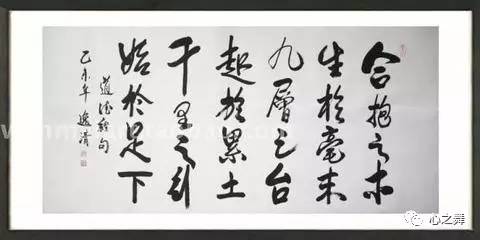 合抱之木
生於毫末
九層之台
起於累土
千里之行
始於足下
道德經句
乙未年
心之舞